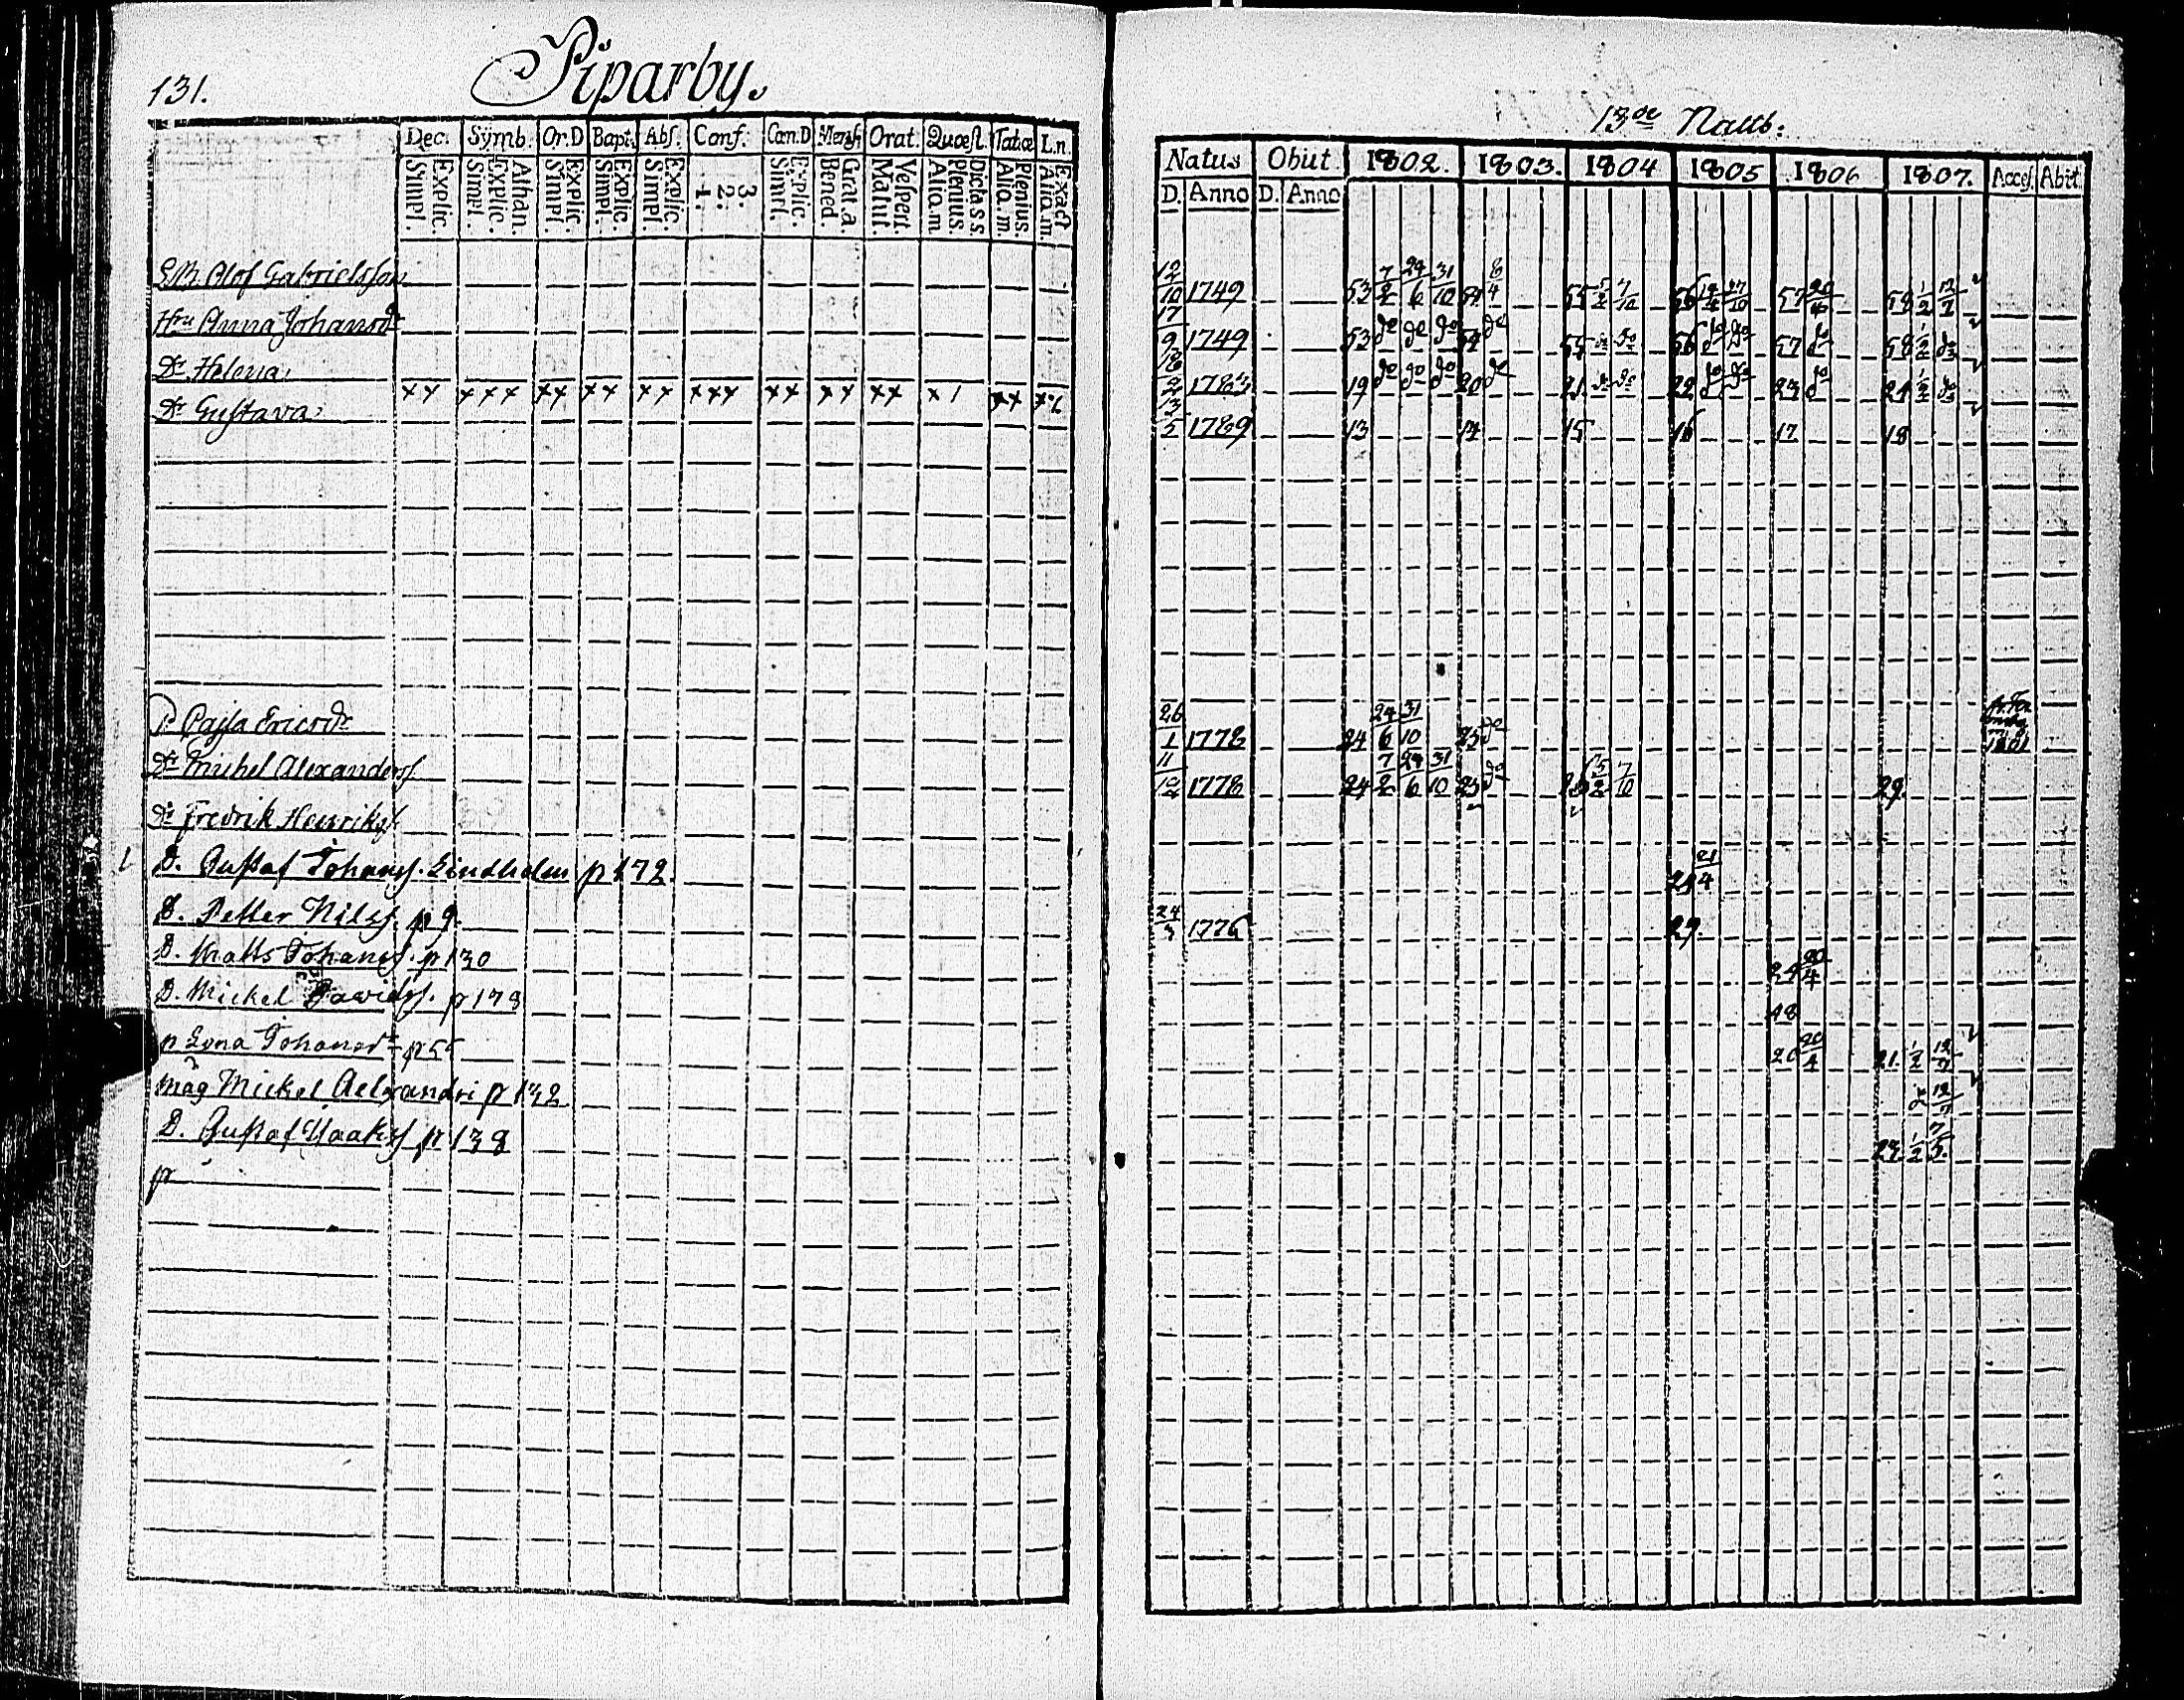 131.
Piparby.
Dec. Symb. Or.D Bapt. Abs. Conf: Can.D Mensæ Orat. Quæst. Tabæ L.n.
Explic. Simpl. Athan. Explic. Simpl. Explic. Simpl. Explic. Simpl. Explic. Simpl. 3. 2. 1. Explic. Simpl. Grat.a. Bened. Vespert. Matut. Dicta S s. Plenius. Aliq.m Plenius. Aliq.m. Exact Aliq.m.
Olof Gabrielsson
Hru Anna Johansdr
Dr Helena
Dr Gustava
P. Cajsa Ericsdr
Dr Michel Alexanderss.
Dr Fredrik Henrikss.
D. Gustaf Johanss. Lindholm p 172.
D. Petter Nilss. p 9.
D. Matts Johanss. p 130
D. Mickel Davidss. p 178
p Lena Johansdr p 55
måg Mickel Alexandri p 132
D. Gustaf Isaakss p 138
p
13de Natb:
Natus Obiit 1802. 1803. 1804 1805 1806 1807. Acces. Abit
D. Anno D. Anno
12/10 1749 53 7/2 24/6 31/10 54 8/4 55 5/2 7/10 56 57 58 1/2 12/7
17/9 1749 53 do do do 54 do 55 do do 56 do do 57 do 58 1/2
1783 19 do do do 20 do 21 do do 22 do do 23 do 24 1/2
13/5 1789 13 14 15 16 17 18
26/1 1778 24 24/6 31/10 25 do
1801
11/12 1778 24 7/2 24/6 31/10 25 do 5/2 7/10 29.
21/4
24/3 1776 29.
20/4
48
20 20/4 21. 1/2 12/7
12/7
1/2